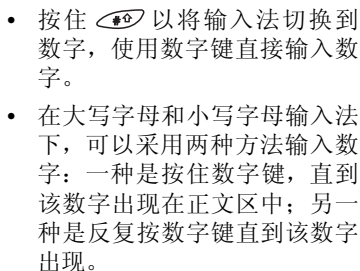 • 按住 #⇧ 以将输入法切换到
数字，使用数字键直接输入数
字。
• 在大写字母和小写字母输入法
下，可以采用两种方法输入数
字：一种是按住数字键，直到
该数字出现在正文区中；另一
种是反复按数字键直到该数字
出现。